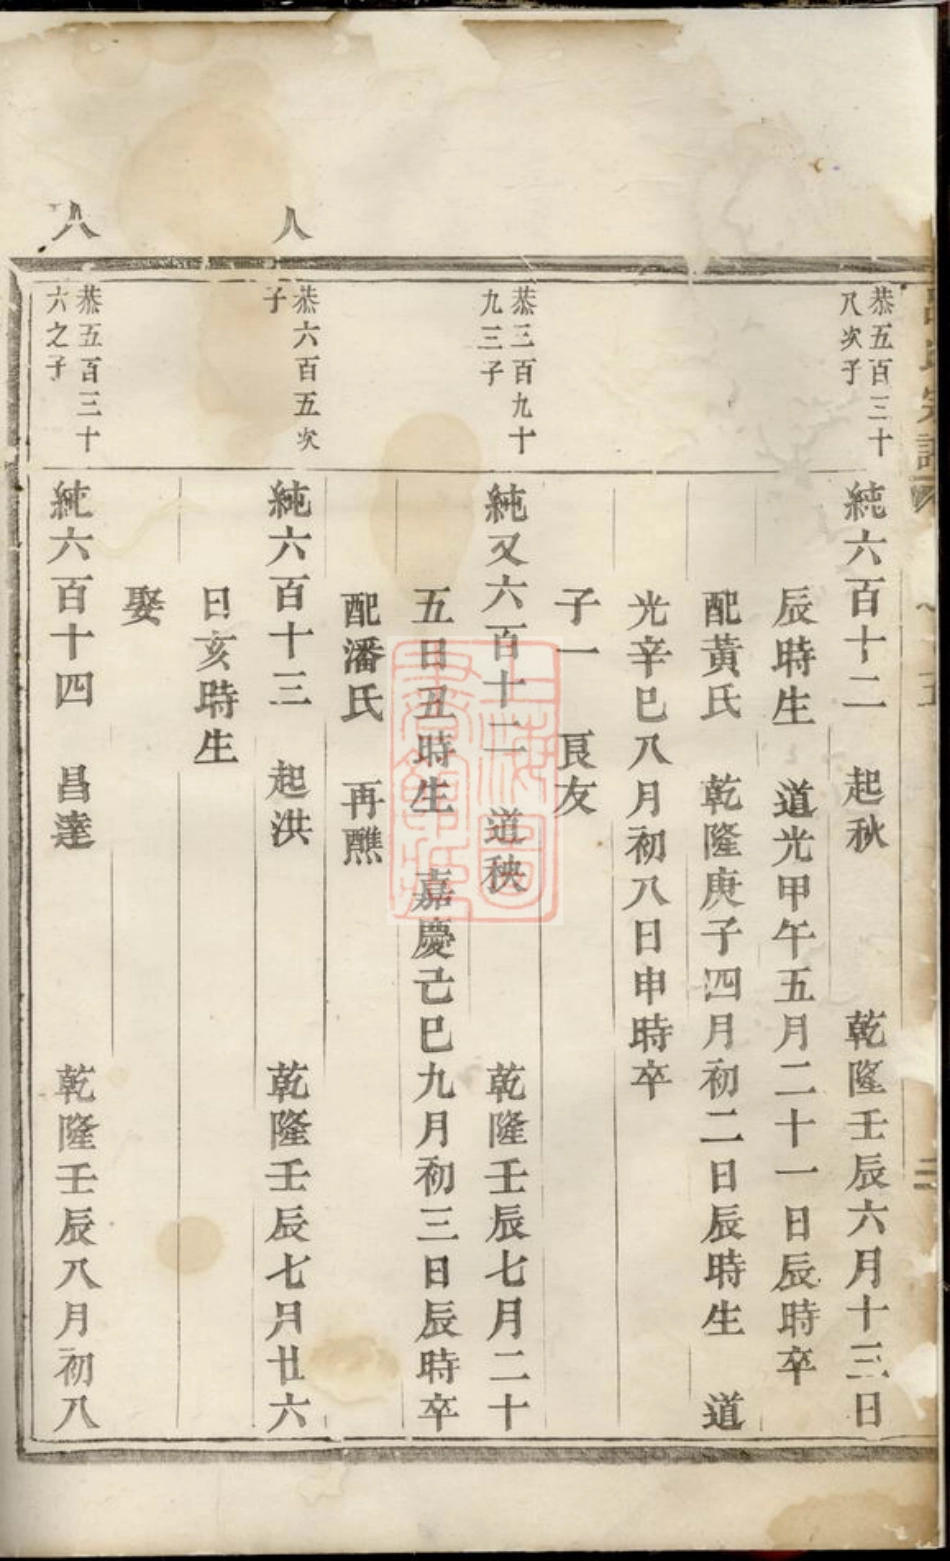 恭五百三十
八次子
純六百十二　起秋　乾隆壬辰六月十三日
辰時生　道光甲午五月二十一日辰時卒
配黃氏　乾隆庚子四月初二日辰時生　道
光辛巳八月初八日申時卒
子一　良友
恭三百九十
九三子
純又六百十二　道秧　乾隆壬辰七月二十
五日丑時生　嘉慶己巳九月初三日辰時卒
配潘氏　再醮
八
恭六百五次
子
純六百十三　起洪　乾隆壬辰七月廿六
日亥時生
娶
八
恭五百三十
六之子
純六百十四　昌達　乾隆壬辰八月初八
上海圖